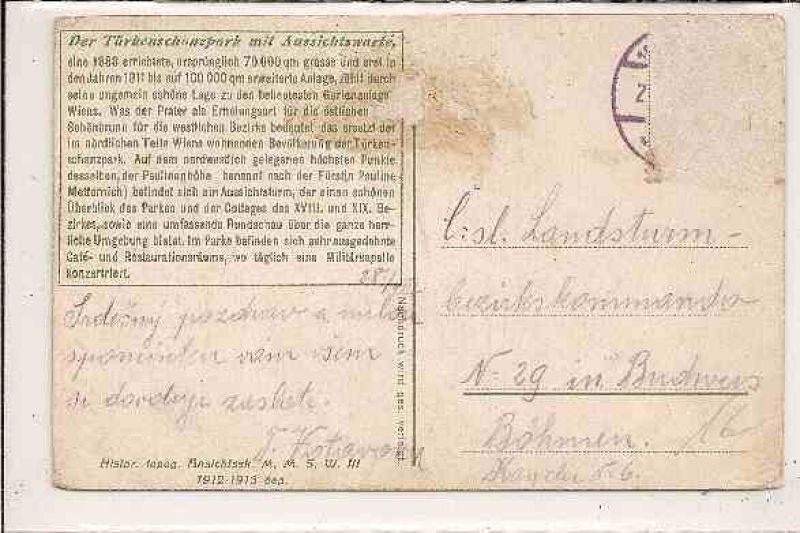 Der Türkenschanzpark mit Aussichtswarte,
eine 1888 errichtete, ursprünglich 70 000 qm grosse und erst in
den Jahren 1911 bis auf 100 000 qm erweiterte Anlage, zählt durch
seine ungemein schöne Lage zu den beliebtesten Gartenanlagen
Wiens. Was der Prater als Erholungsort für die östlichen
Schönbrunn für die westlichen Bezirke bedeutet, das ersetzt der
im nördlichen Teile Wiens wohnenden Bevölkerung der Türken-
schanzpark. Auf dem nordwestlich gelegenen höchsten Punkte
desselben, der Paulinenhöhe (benannt nach der Fürstin Pauline
Metternich) befindet sich ein Aussichtsturm, der einen schönen
Überblick des Parkes und der Cottages des XVIII. und XIX. Be-
zirkes, sowie eine umfassende Rundschau über die ganze herr-
liche Umgebung bietet. Im Parke befinden sich sehr ausgedehnte
Café- und Restaurationsräume, wo täglich eine Militärkapelle
konzertiert.
Srdečný pozdrav a
vám všem
zasílá
Nachdruck wird ges. verfolgt
Histor. topog. Ansichtssk. M. M. S. W. III
1912-1913 dep.
2
Landsturm-
bezirkskommando
N- 29 in Budweis
Böhmen. 16